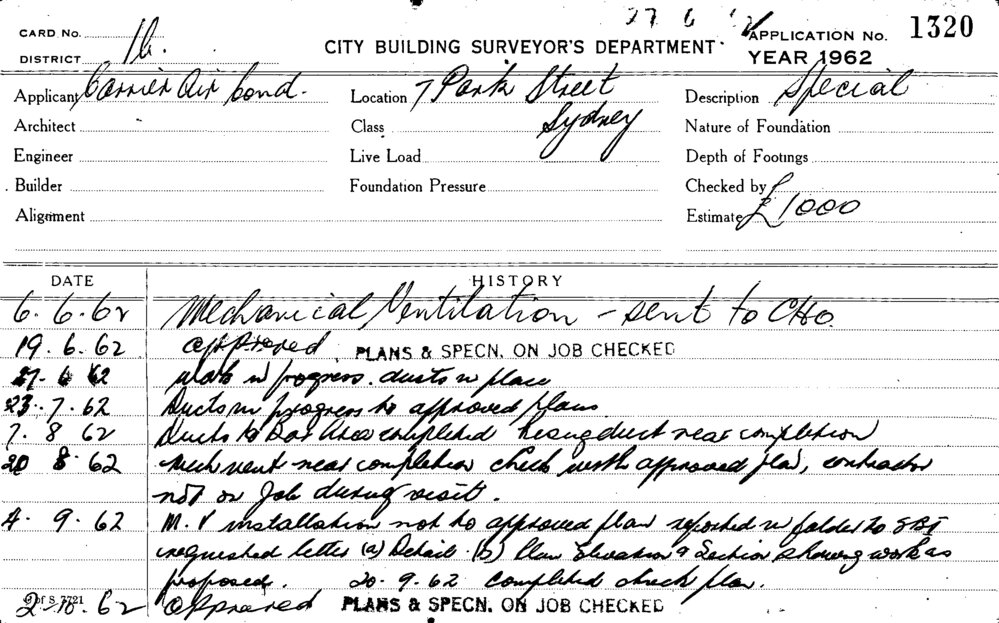 27 6 62
CARD No.
DISTRICT 16.
CITY BUILDING SURVEYOR'S DEPARTMENT.
APPLICATION No. 1320
YEAR 1962
Applicant Carrier Air Cond.
Location 7 Park Street
Sydney
Description Special
Architect
Class
Nature of Foundation
Engineer
Live Load
Depth of Footings
Builder
Foundation Pressure
Checked by
Alignment
Estimate £1000
DATE HISTORY
6. 6. 62 Mechanical Ventilation - sent to CHO.
19. 6. 62 approved. PLANS & SPECN. ON JOB CHECKED
27. 6 62 work in progress. ducts in place
23. 7. 62 Ducts in progress to approved plans.
7. 8 62 Ducts to Bar Area completed duct near completion
20 8. 62 Mech vent near completion check with approved plan, contractor
not on Job during visit.
4. 9. 62 M. V installation not to approved plan reported in folder to SBI
requested letter (a) Detail. (b) Plan Elevation & Section showing work as
proposed. 20. 9. 62 Completed check plan.
2. 10. 62 Approved PLANS & SPECN. ON JOB CHECKED
of S. 7721